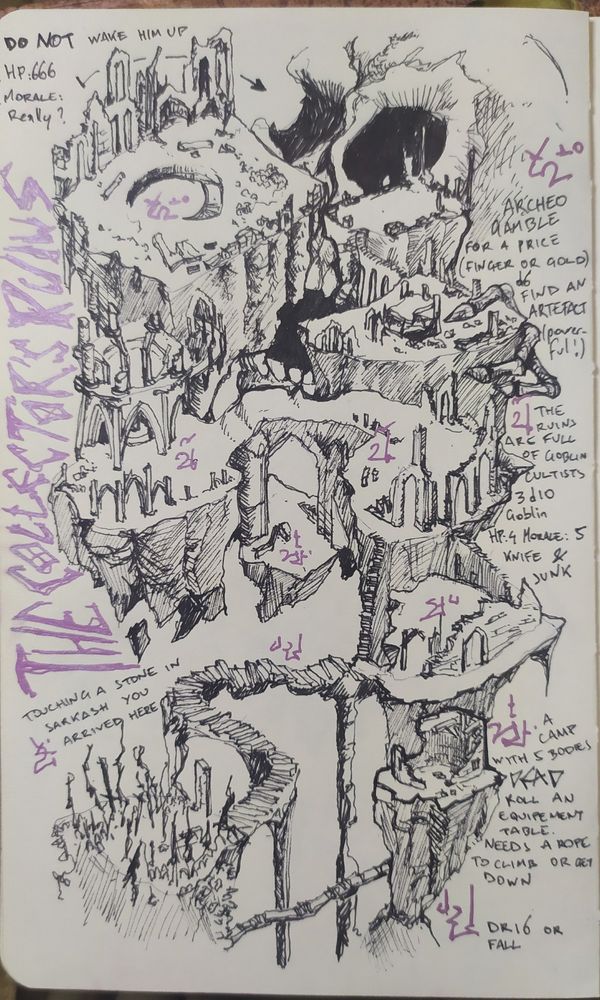 DO NOT WAKE HIM UP
HP:666
MORALE:
Really?
THE COLLECTORS RUINS
ARCHEO
GAMBLE
FOR A PRICE
(FINGER OR GOLD)
FIND AN
ARTEFACT
(power-
ful!)
THE
RUINS
ARE FULL
OF GOBLIN
CULTISTS
3d10
Goblin
HP:4 MORALE: 5
KNIFE &
JUNK
TOUCHING A STONE IN
SARKASH YOU
ARRIVED HERE
A
CAMP
WITH 5 BODIES
DEAD
ROLL AN
EQUIPEMENT
TABLE.
NEEDS A ROPE
TO CLIMB OR GET
DOWN
DR16 OR
FALL